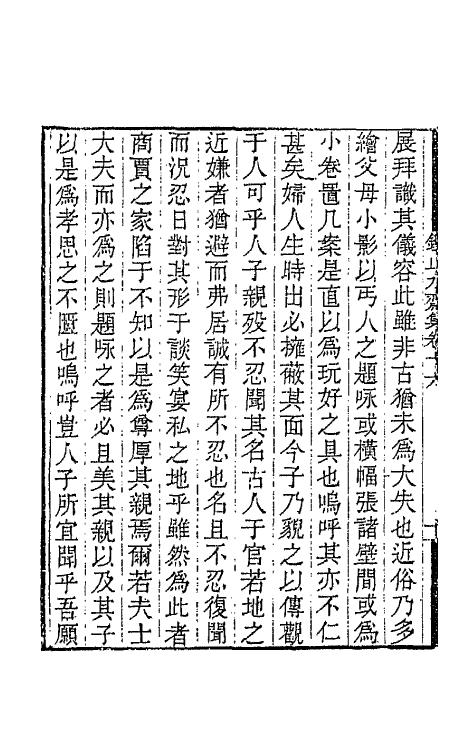 展拜識其儀容此雖非古猶未爲大失也近俗乃多
繪父母小影以丐人之題咏或橫幅張諸壁間或爲
小卷置几案是直以爲玩好之具也嗚呼其亦不仁
甚矣婦人生時出必擁蔽其面今子乃貌之以傳觀
于人可乎人子親殁不忍聞其名古人于官若地之
近嫌者猶避而弗居誠有所不忍也名且不忍復聞
而況忍日對其形于談笑宴私之地乎雖然爲此者
商賈之家陷于不知以是爲尊厚其親焉爾若夫士
大夫而亦爲之則題咏之者必且美其親以及其子
以是爲孝思之不匱也嗚呼豈人子所宜聞乎吾願